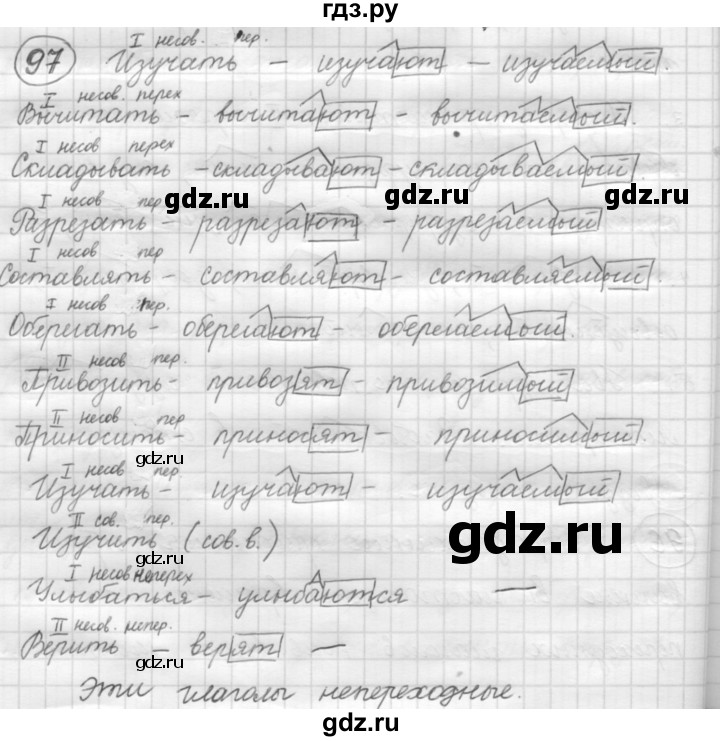 гдз.ру
I несов. пер.
97 Изучать - изучают - изучаемый.
I несов. перех
Вычитать - вычитают - вычитаемый.
I несов перех
Складывать - складывают - складываемый.
gdz.ru gdz.ru
I несов пер.
Разрезать - разрезают - разрезаемый
I несов пер
Составлять - составляют - составляемый.
gdz.ru gdz.ru
I несов пер.
Оберегать - оберегают - оберегаемый.
gdz.ru
II несов пер.
Привозить - привозят - привозимый
II несов пер
Приносить - приносят - приносимый.
gdz.ru
I несов пер.
Изучать - изучают - изучаемый
II сов. пер.
Изучить (сов.в.)
gdz.ru
gdz.ru
I несов неперех
Улыбаться - улыбаются —
II несов. непер.
Верить - верят —
gdz.ru
Эти глаголы непереходные.
gdz.ru